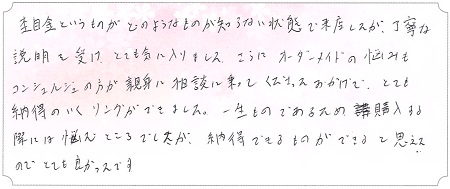 杢目金というものがどのようなものか知らない状態で来店しましたが、丁寧な
説明を受け、とても気に入りました。さらにオーダーメイドの悩みも
コンシェルジュの方が親身に相談に乗ってくださったおかげで、とても
納得のいくリングができました。一生ものであるため購入する
際には悩むところでしたが、納得できるものができると思えた
のでとても良かったです